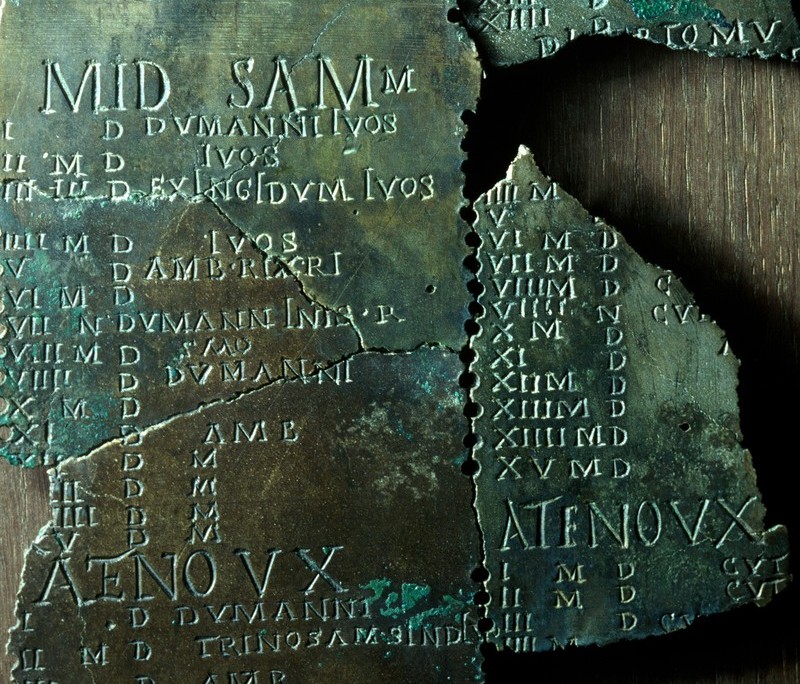 MID SAM M
I D DVMANNI IVOS
II M D IVOS
III D EXINGIDVM IVOS
IIII M D IVOS
V D AMB RIXRI
VI M D
VII N DVMANN INIS R
VIII M D SMO
VIIII D DVMANNI
X M D
XI D AMB
D M
II D M
III D M
IIII D M
V D M
ATENOVX
I D DVMANNI
II M D TRINOSAM SINDI
D AMB
XIIII D
IIII M
V
VI M D
VII M D
VIII M D C
VIIII N CVT
X M D
XI D
XII M D
XIII M D
XIIII M D
XV M D
ATENOVX
I M D CVT
II M D CVT
III D CV
IIII M